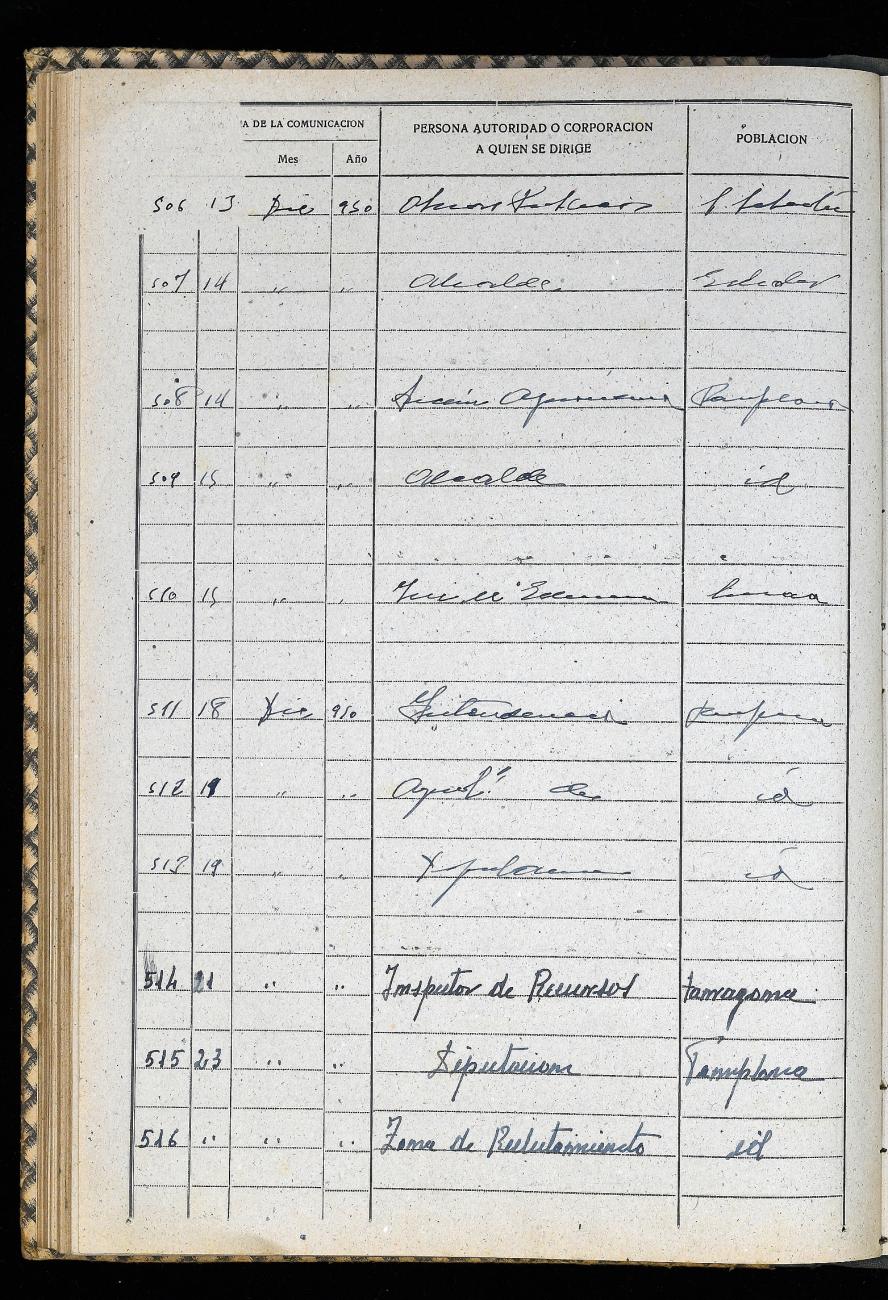 A DE LA COMUNICACION
PERSONA AUTORIDAD O CORPORACION
A QUIEN SE DIRIGE
POBLACION
Mes Año
506 13 Dic 950
507 14 " " Alcalde
508 14 " " Pamplona
509 15 " " Alcalde id
510 15 " "
511 18 Dic 950 Intendencia Pamplona
512 19 " " de id
513 19 " " Diputacion id
514 21 " " Inspector de Recursos Tarragona
515 23 " " Diputacion Pamplona
516 " " " Zona de Reclutamiento id